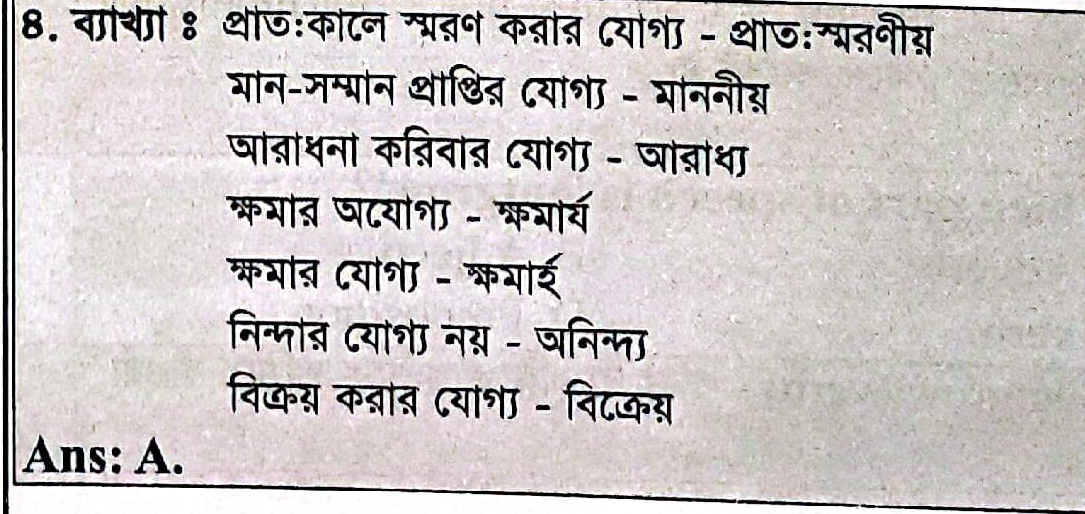 8. ব্যাখ্যা ঃ প্রাত:কালে স্মরণ করার যোগ্য - প্রাত:স্মরণীয়
মান-সম্মান প্রাপ্তির যোগ্য - মাননীয়
আরাধনা করিবার যোগ্য - আরাধ্য
ক্ষমার অযোগ্য - ক্ষমার্য
ক্ষমার যোগ্য - ক্ষমার্হ
নিন্দার যোগ্য নয় - অনিন্দ্য
বিক্রয় করার যোগ্য - বিক্রেয়
Ans: A.